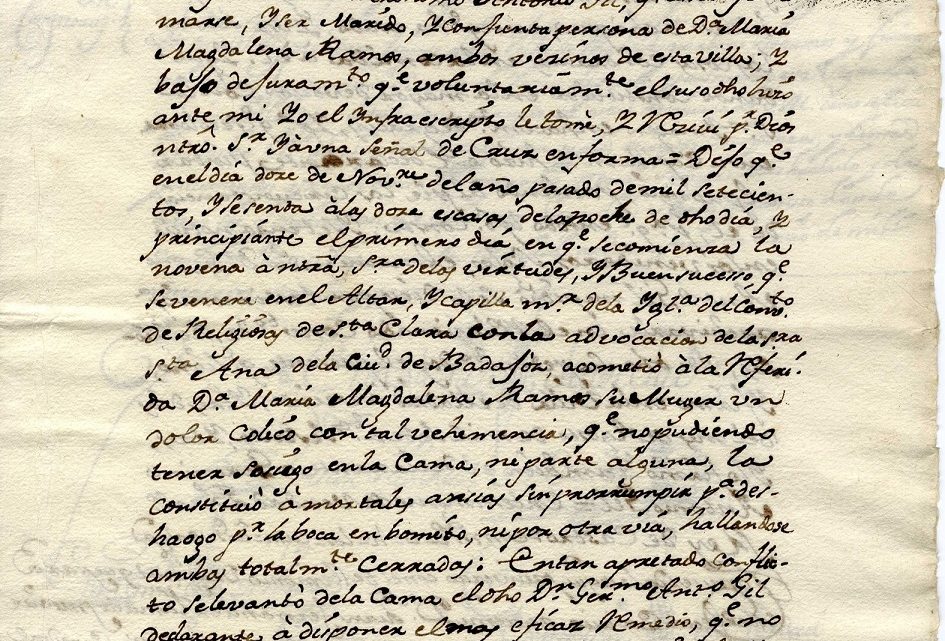 marse, Y ser Marido, Y Confienta persona de D.ª Maria
Magdalena Ramos, ambos vezinos de esta villa; Y
baso de suram.to q.e voluntariam.te el suso dho hizo
ante mi Yo el Infraescripto le tomè, Y Rezivi p.r Dios
ntrõ. S.r Y àuna señal de Cruz en forma = Dijo q.e
en el diá doze de Nov.re del año pasado de mil setecien-
tos, Y sesenta à las doze escasas dela noche de dho diá, Y
principiante el primero diá en q.e se comienza la
novena à ntrã, S.ra delas virtudes, Y Buen sucesso, q.e
se venera en el Altar, Y capilla m.r dela Ygl.a del Conv.to
de Religiosas de S.ta Clara con la advocacion dela S.ra
S.ta Ana dela Ciu.d de Badajoz, acometiò à la Referi-
da D.ª Maria Magdalena Ramos su Muger un
dolor Colico con tal vehemencia, q.e no pudiendo
tener sosiego en la Cama, ni parte alguna, la
constituiò à mortales ansias sin prorrumpir p.a des-
haogo p.r la boca en bomito, ni por otra viá, hallandose
ambas totalm.te Cerradas: En tan apretado conflic-
to se levantò dela Cama el dho D.n Ger.mo Ant.o Gil
declarante à disponer el mas eficaz Remedio, q.e no